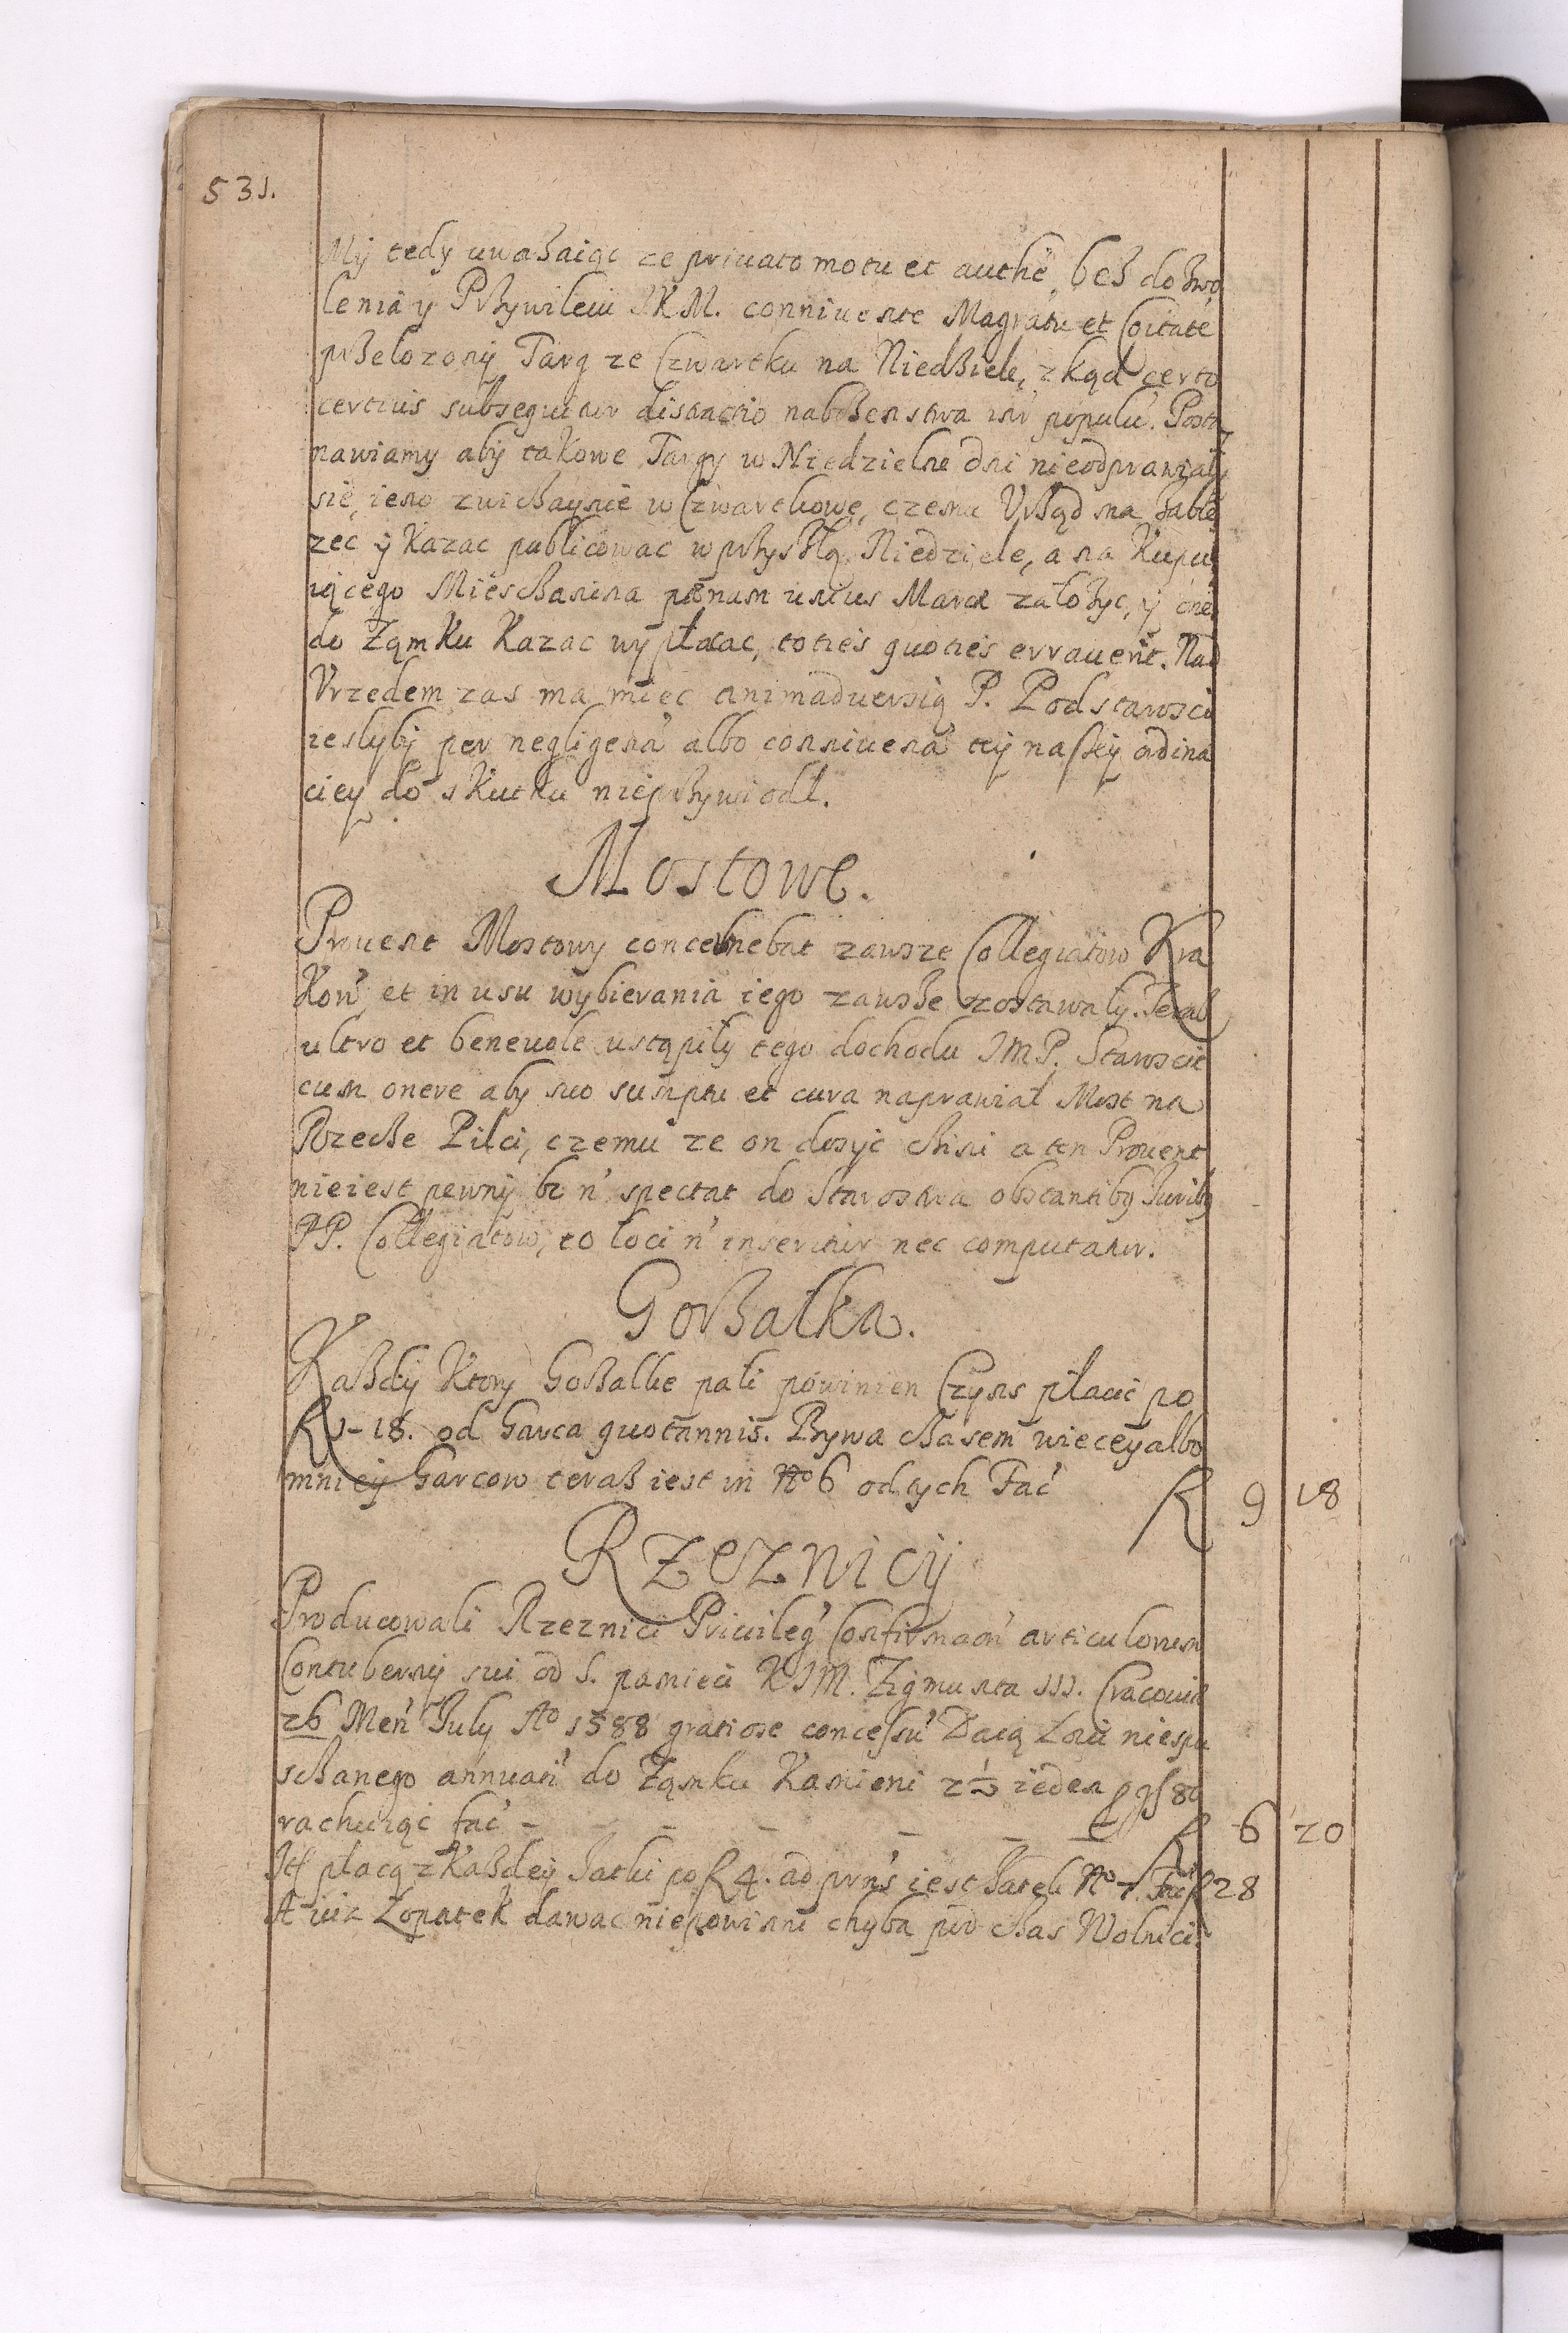 531.
Mÿ tedy uwaßaiąc ze priuato motu et authẽ, beß doßwo
lenia y Prßywileiu JKM. conniuente Magratu et Coitate
prßelozonÿ Targ ze Czwartku na Niedßiele, zkąd certo
certius subsequitur distractio naboßenstwa inr populu. Posta
nawiamy abÿ takowe Targy w Niedzielne dni nieodprawiały
się, ieno zwicßaynie w Czwartkowe, czemu Vrßąd ma zabie
zec ÿ Kazac publicowac w prßyßłą Niedziele, a na Kupu
iącego Miescßanina pœnam unius Marcæ załoßyc, ÿ onę
do Ząmku Kazac wypłacac, toties quoties errauerit. Nad
Vrzedem zas ma miec animaduersią P. Podstarosci
ieslybÿ per negligena albo conniuena teÿ naßeÿ ordina
ciey do skutku nieprßywiodł.
Mostowe.
Prouent Mostowy concernebat zawsze Collegiatow Kra
Kow' et in usu wybierania iego zawsße zostawalÿ. Teraß
ultro et beneuole ustąpilÿ tego dochodu JMP. Staroscie
cum onere aby suo sumptu et cura naprawiał Most na
Rzecße Pilci, czemu ze on dosÿc cßini a ten Prouent
nieiest pewnÿ bo n' spectat do Starostwa obstantibꝫ Juribꝫ
PP. Collegiatow, eo loci n' inseritur nec computatur.
Gorßałka.
Kaßdÿ Ktory Gorßałke pali powinien Czyns płacic po
f 1-18. od Garca quotannis. Bywa cßasem wiecey albo
mnieÿ Garcow teraß iest in No 6 od tych Fac' f 9 18
Rzeznicÿ
Producowali Rzeznici Priuileg' Confirmaon' articulorum
Contubernÿ sui od S. pamieci KJM. Zigmunta III. Cracouiæ
26 Men' July Ao 1588 gratiose conceßu' Daią Łoiu niespu
scßanego annuati' do Ząmku Kamieni 2½ ieden
rachuiąc fac' - - - - - f 6 20
It płacą z Kaßdeÿ Jatki po f 4. ad pnś iest Jatek No 7. Fac' f 28
A iuz Łopatek dawac niepowinni chyba pod cßas Wolnici.